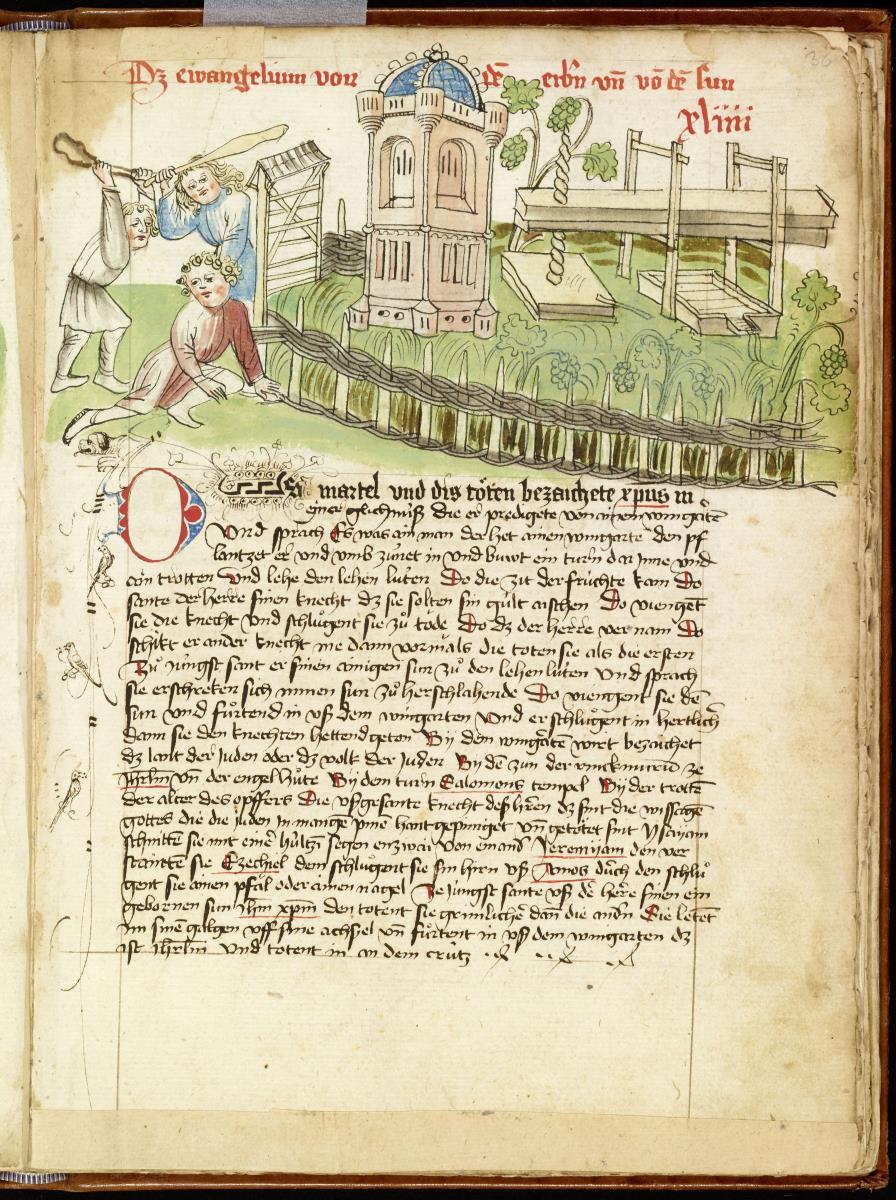 Dz ewangelium von dē erbn vn̄ vō dē sun
xliiii
36
martel vnd dis töten bezaichete xp̄us in
einer glichnuß die er predigete von ainem wingartē
Vnd sprach Es was ain man der het ainen wingartē den pf
lantzet er vnd vmb zúnet in vnd buwt ein turn dar inne vnd
ain trotten vnd lehe den lehen lúten Do die zit der frúchte kam Do
sante der herre sinen knecht dz sie solten sin gúlt aischen Do viengēt
sie die knecht vnd schlůgent sie zů tode Do dz der herre ver nam Do
schikt er ander knecht me dann vormals die toten sie als die ersten
Zů jungst sant er sinen ainigen sun zů den lehen lúten Vnd sprach
sie erschreken sich minen sun zů herschlahende Do viengent sie dē
sun vnd fůrtend in vß dem wingarten vnd erschlůgent in hertlich̄
dann sie den knechten hettend geton Bij dem wingartē wirt bezaichet
dz lant der juden oder dz volk der juden Bij dē zun der rinckmurū ze
jhrl̄m vn̄ der engel hůte Bij dem turn Salomons tempel Bij der trottē
der alter des opffers Die vßgesante knecht deß hren dz sint die wissagē
gottes die die juden in mange pine hant gepiniget vn̄ getötet sint ysayam
schnitten sie mit einer húltzī segen enzwai Von ein andr̄ Jeremijam den ver
staintē sie Ezechiel dem schlůgent sie sin hirn vß Amos dúrch den schlů
gent sie ainen pfal oder ainen nagel Ze jungst sante vß d̄ herre sinen ein
gebornen sun jhm̄ xp̄m den totent sie grimlicher dan̄ die andn̄ Sie letēt
im sinē galgen vff sine achsel vn̄ fůrtent in vß dem wingarten dz
ist jhrl̄m vnd totent in an dem crútz